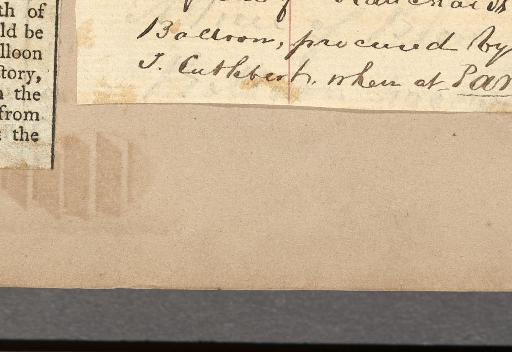 th of
ld be
lloon
tory,
n the
from
the
Balloon, procured by
J. Cuthbert, when at Par